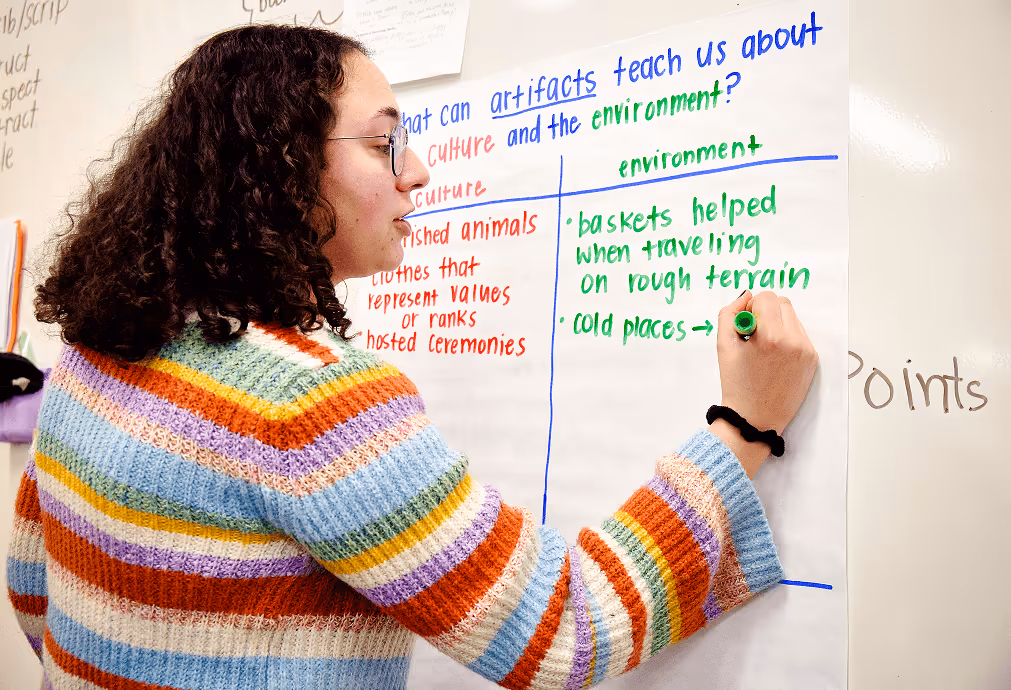 ib/scrip
ruct
spect
tract
le
hat can artifacts teach us about
culture and the environment?
culture
rished animals
clothes that
represent values
or ranks
hosted ceremonies
environment
• baskets helped
when traveling
on rough terrain
• cold places →
Points